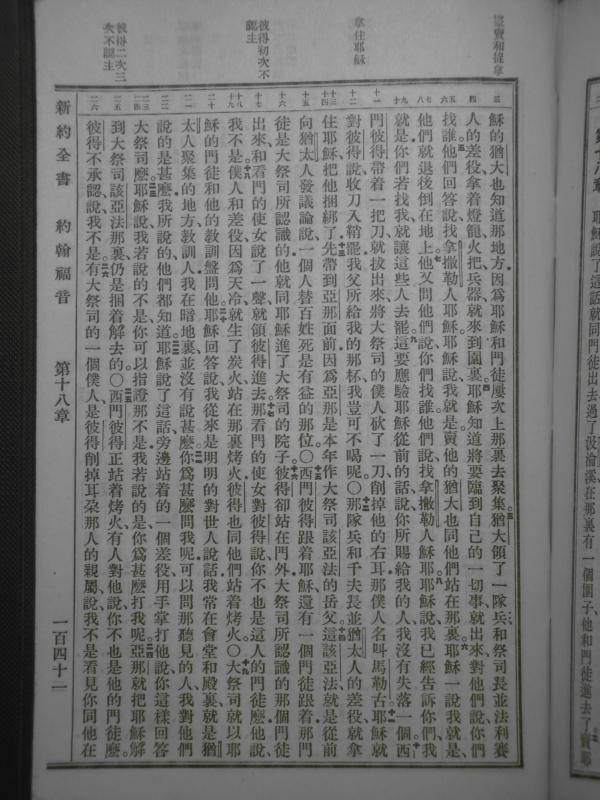 拿住耶穌
彼得初次不
認主
彼得二次三
次不認主
穌的猶大也知道那地方因爲耶穌和門徒屢次上那裏去聚集猶大領了一隊兵和祭司長並法利賽
人的差役拿着燈籠火把兵器就來到園裏耶穌知道將要臨到自己的一切事就出來對他們說你們
找誰他們回答說找拿撒勒人耶穌耶穌說我就是賣他的猶大也同他們站在那裏耶穌一說我就是
他們就退後倒在地上他又問他們說你們找誰他們說找拿撒勒人耶穌耶穌說我已經告訴你們我
就是你們若找我就讓這些人去罷這要應驗耶穌從前的話說你所賜給我的人我沒有失落一個西
門彼得帶着一把刀就拔出來將大祭司的僕人砍了一刀削掉他的右耳那僕人名叫馬勒古耶穌就
對彼得說收刀入鞘罷我父所給我的那杯我豈可不喝呢〇那隊兵和千夫長並猶太人的差役就拿
住耶穌把他捆綁了先帶到亞那面前因爲亞那是本年作大祭司該亞法的岳父這該亞法就是從前
向猶太人發議論說一個人替百姓死是有益的那位〇西門彼得跟着耶穌還有一個門徒跟着那門
徒是大祭司所認識的他就同耶穌進了大祭司的院子彼得卻站在門外大祭司所認識的那個門徒
出來和看門的使女說了一聲就領彼得進去那看門的使女對彼得說你不也是這人的門徒麼他說
我不是僕人和差役因爲天冷就生了炭火站在那裏烤火彼得也同他們站着烤火〇大祭司就以耶
穌的門徒和他的教訓盤問他耶穌回答說我從來是明明的對世人說話我常在會堂和殿裏就是猶
太人聚集的地方教訓人我在暗地裏並沒有說甚麼你爲甚麼問我呢可以問那聽見的人我對他們
說的是甚麼我所說的他們都知道耶穌說了這話旁邊站着的一個差役用手掌打他說你這樣回答
大祭司麼耶穌說我若說的不是你可以指證那不是我若說的是你爲甚麼打我呢亞那就把耶穌解
到大祭司該亞法那裏仍是捆着解去的〇西門彼得正站着烤火有人對他說你不也是他的門徒麼
彼得不承認說我不是有大祭司的一個僕人是彼得削掉耳朵那人的親屬說我不是看見你同他在
新約全書 約翰福音 第十八章 一百四十一